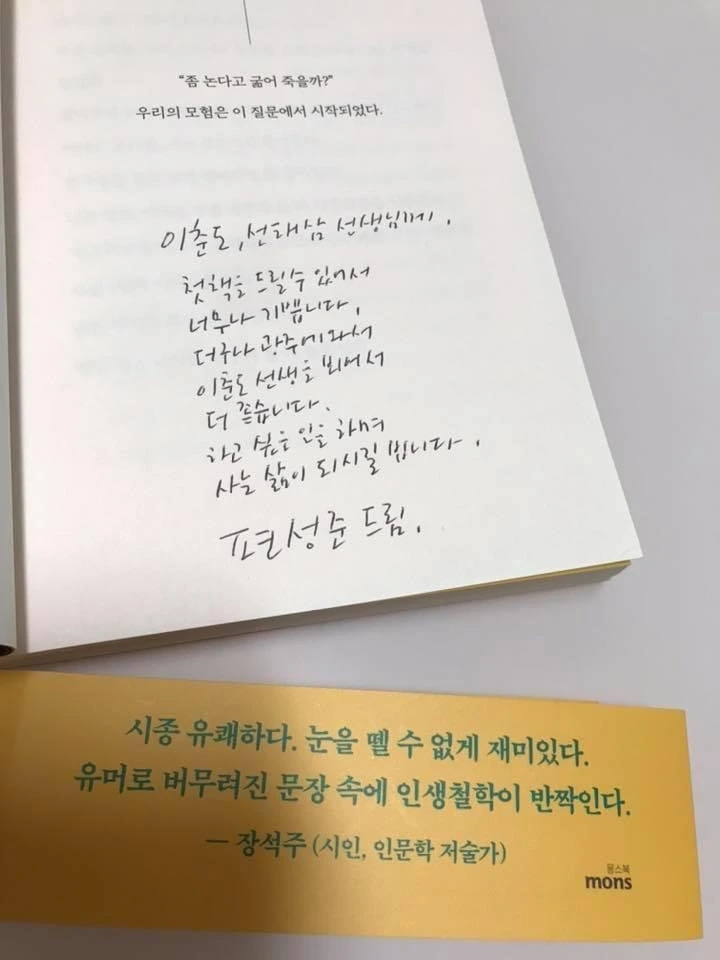 “좀 논다고 굶어 죽을까?”
우리의 모험은 이 질문에서 시작되었다.
이춘도, 선태삼 선생님께,
첫 책을 드릴 수 있어서
너무나 기쁩니다.
더구나 광주에 와서
이춘도 선생을 뵈어서
더 좋습니다.
하고 싶은 일을 하며
사는 삶이 되시길 빕니다.
편성준 드림.
시종 유쾌하다. 눈을 뗄 수 없게 재미있다.
유머로 버무려진 문장 속에 인생철학이 반짝인다.
— 장석주 (시인, 인문학 저술가)
몽스북
mons